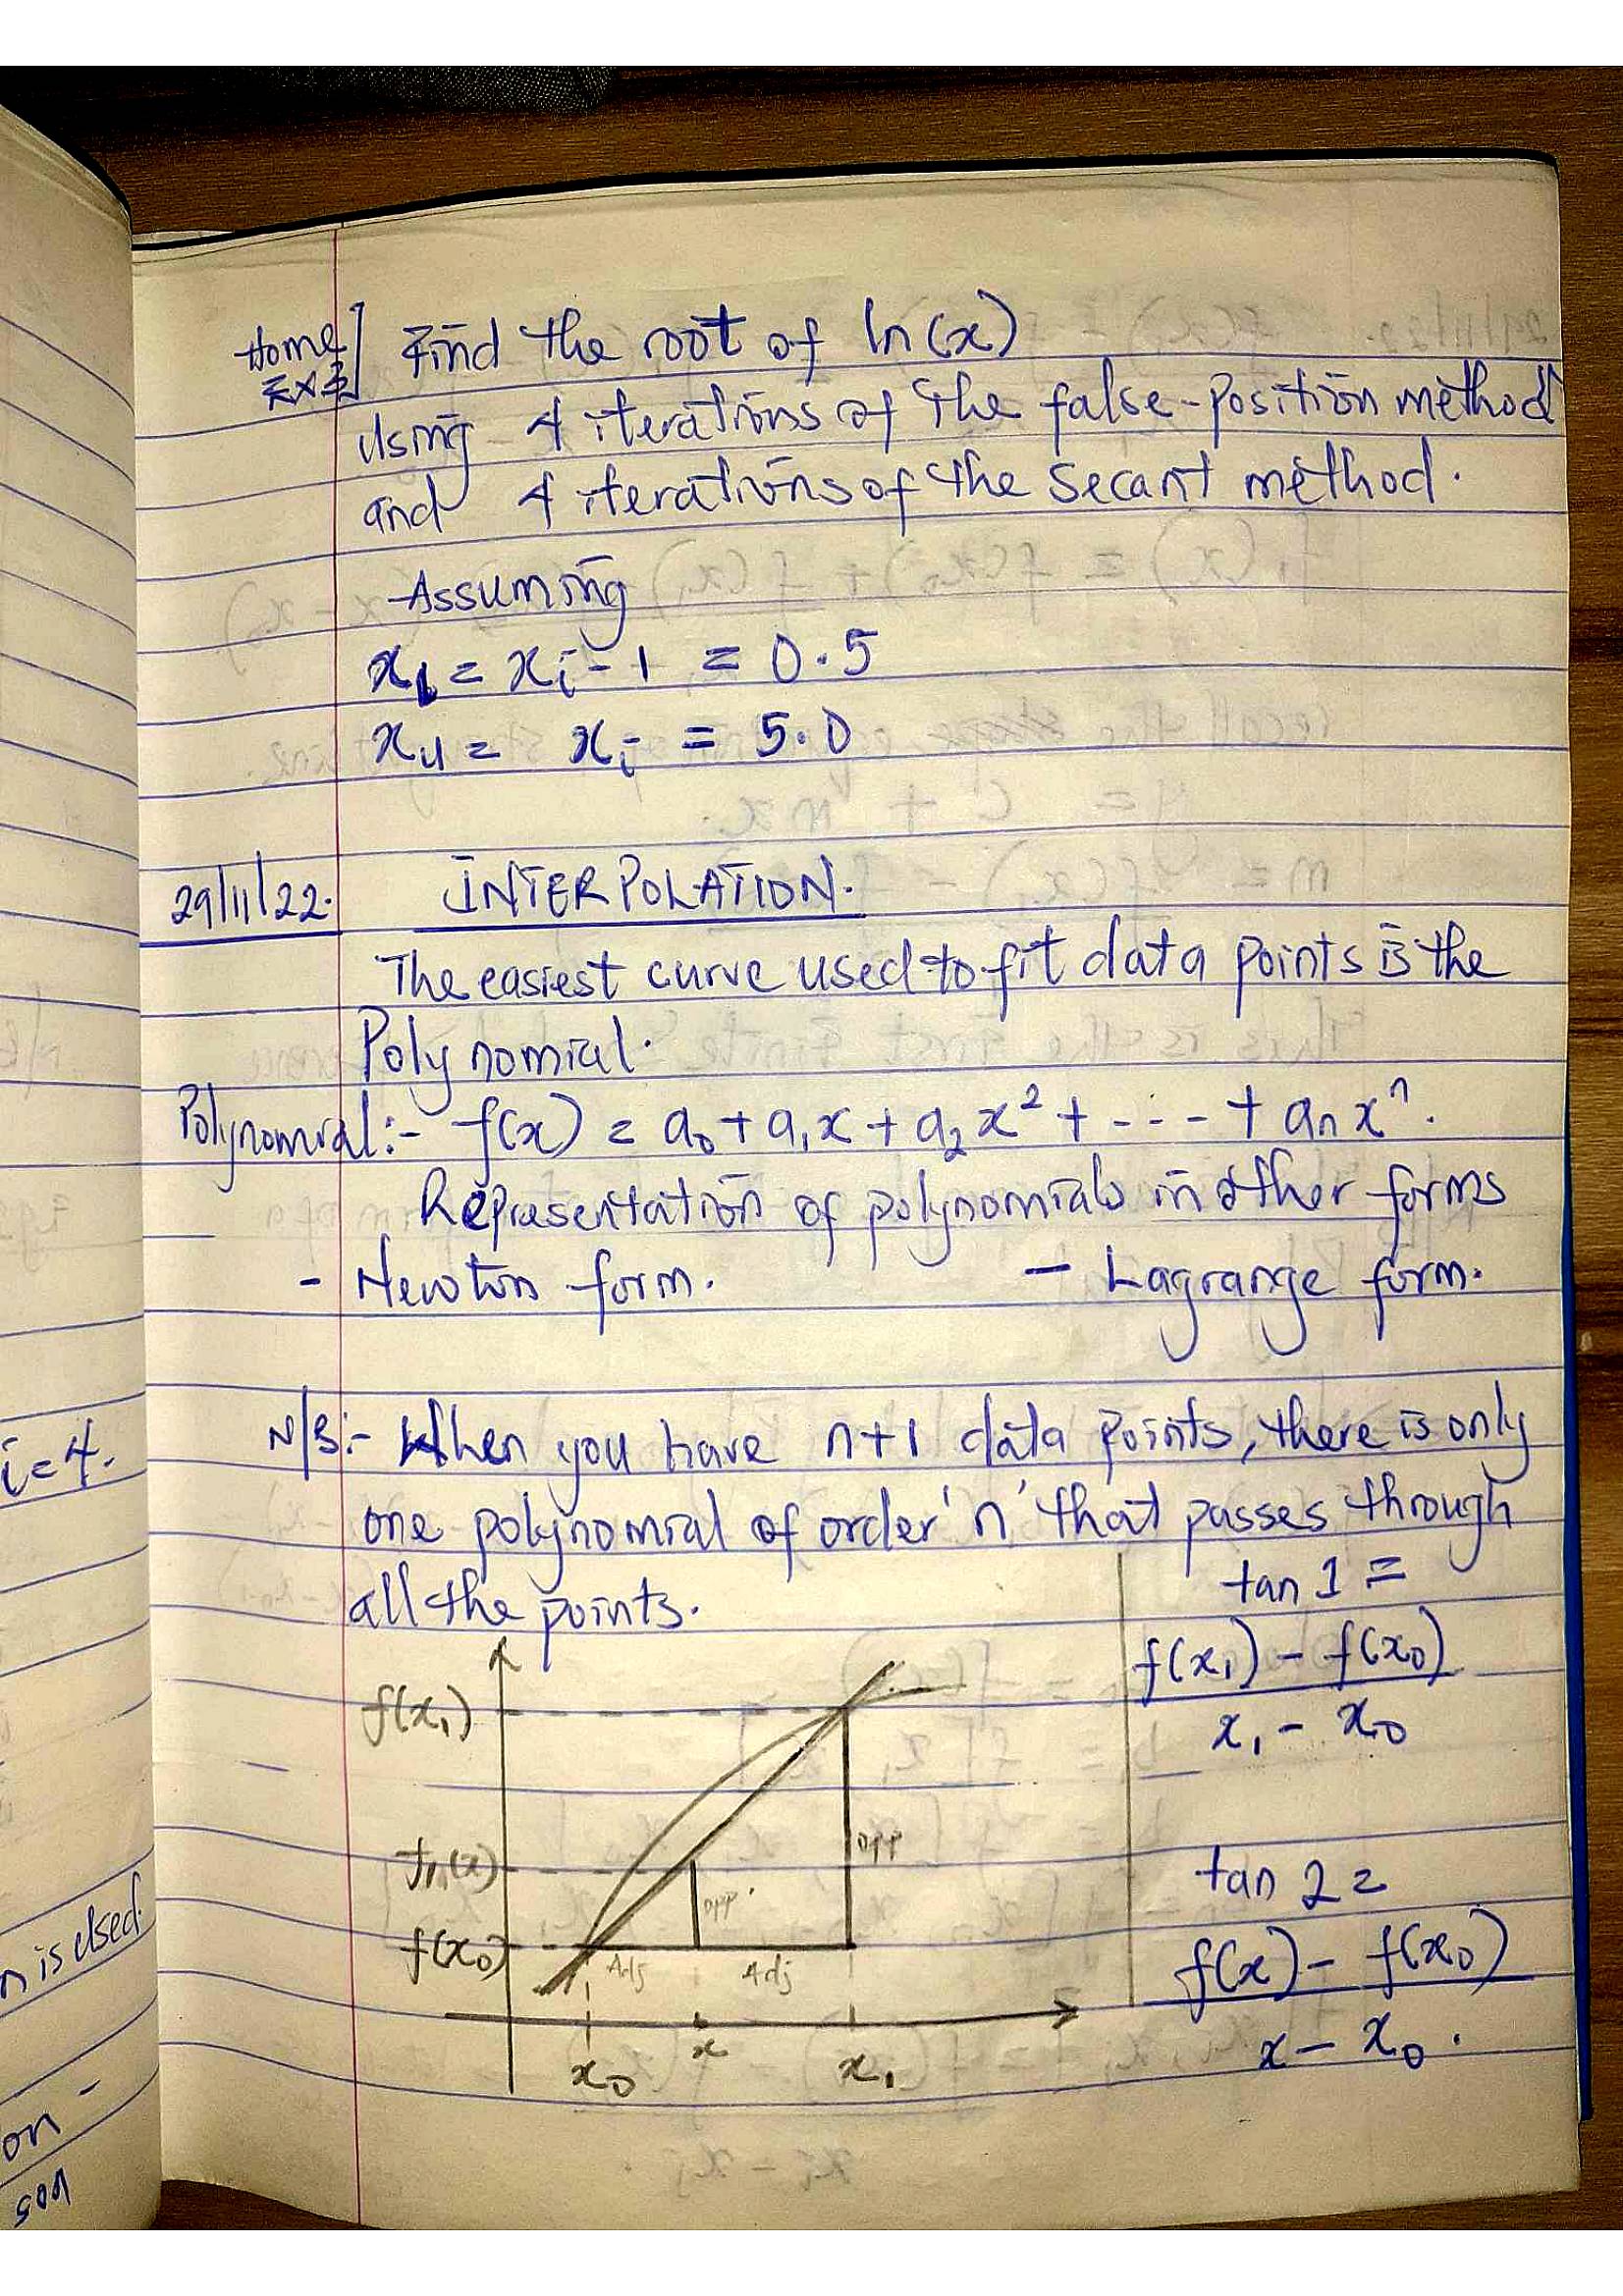 Home
Ex1] Find the root of ln(x)
using 4 iterations of the false-position method
and 4 iterations of the Secant method.
Assuming
xL = xi-1 = 0.5
xu = xi = 5.0
29/11/22. INTERPOLATION.
The easiest curve used to fit data points is the
Polynomial.
Polynomial:- f(x) = a₀ + a₁x + a₂x² + ---- + aₙxⁿ.
Representation of polynomials in other forms
- Newton form. - Lagrange form.
N/B:- When you have n+1 data points, there is only
i=4. one polynomial of order 'n' that passes through
all the points.
tan 1 =
f(x₁) - f(x₀)
x₁ - x₀
f(x₁)
f₁(x)
f(x₀)
opp
opp
Adj
Adj
x₀
x
x₁
tan 2 =
f(x) - f(x₀)
x - x₀.
n is used.
on -